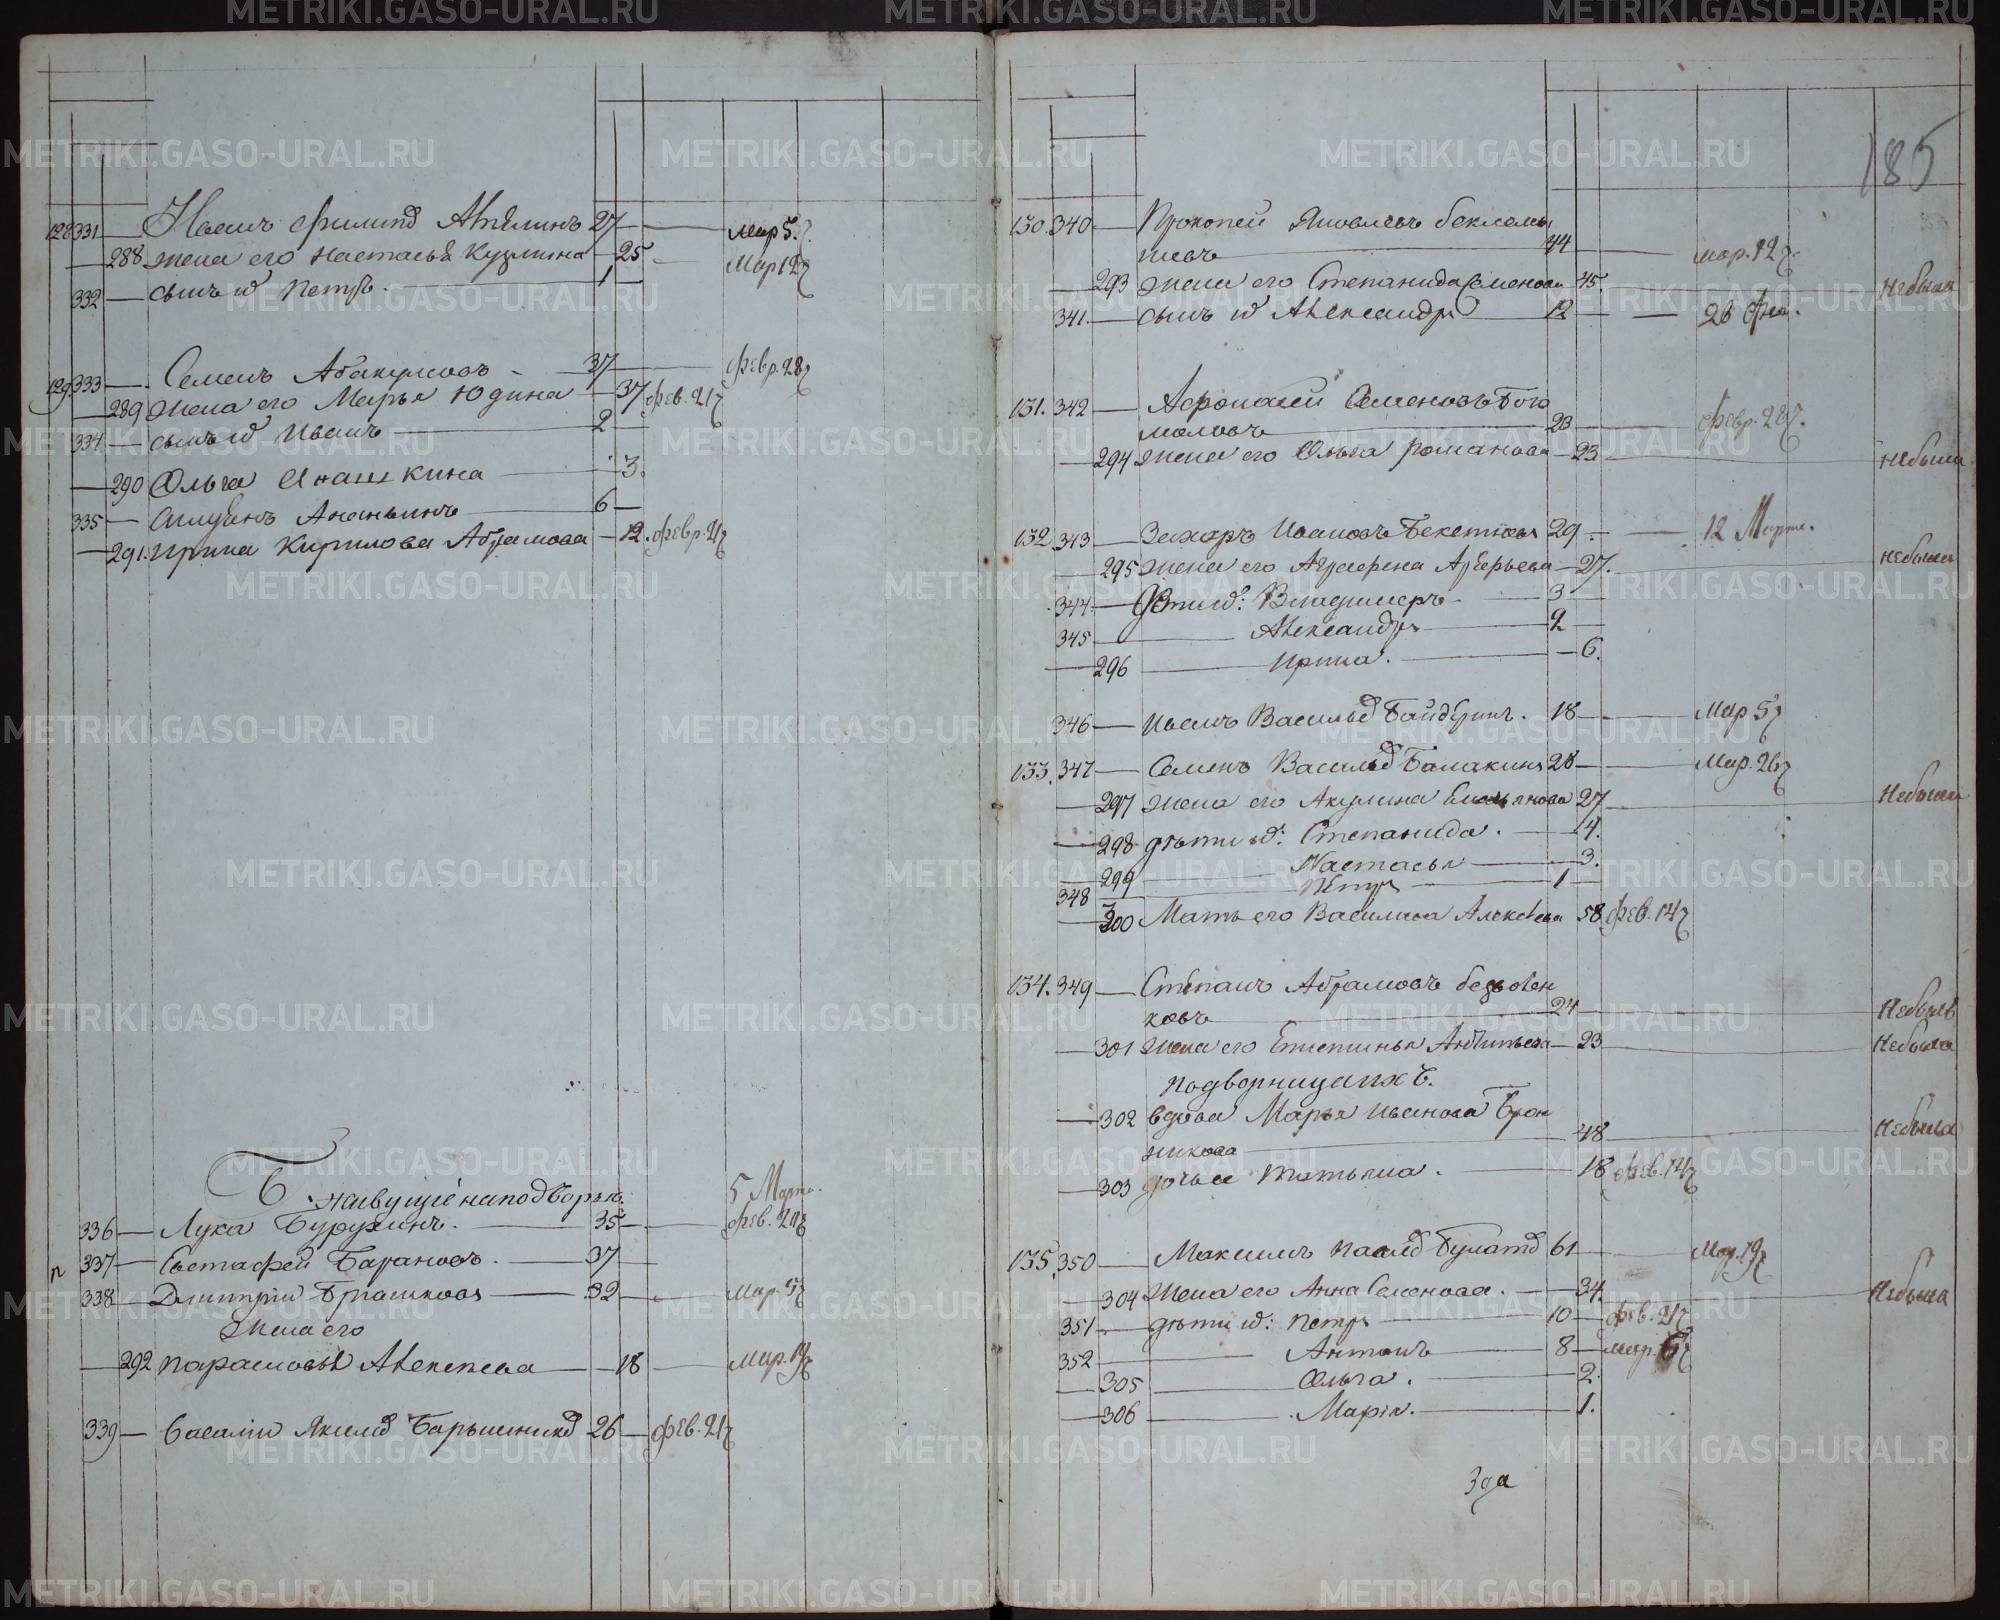 128 331 Иванъ Филип Апѣлинъ 27 Мар 5.
288 жена его Настасья Кузмина 25 Мар 12
332 сынъ их Петръ 1
129 333 Семенъ Абакумовъ 37 Февр. 28
289 жена его Марья Юдина 37 Фев. 21
334 сынъ их Иванъ 2
290 Ольга Инашкина 3.
335 Ананьинъ 6
291. Ирина Кирилова Абрамова 12. Февр. 21
Б
живущіе на подворье. 5 Мар.
336 Лука Бурухинъ. 35 Фев. 21
п 337 Евстафей Барановъ. 37
338 Дмитрiй Брашковъ 32 Мар. 5
Жена его
292 Парасковья Алексеева 18 Мар. 19
339 Василiй Якимов Барышников 26 Фев. 21
185
130. 340 Прокопей Яковлевъ беклемы
шевъ 44 Мар. 12
293 жена его Степанида Семенова 45. Небыла
341. сынъ их Александръ 12 26 Фев.
131. 342 Афонасей Семеновъ Бого
моловъ 23 Февр. 28
294 жена его Ольга Романова 23 Небыла
132. 343 Захаръ Ивановъ Бекетовъ 29 12 Марта.
295 жена его Аграфена Аверьева 27. Небыла
344 Дѣти их: Владимеръ 3
345 Александръ 2
296 Ирина. 6.
346 Иванъ Васильев Байдеринъ. 18 Мар 5
133. 347 Семенъ Васильев Балакинъ 28 Мар. 26
297 жена его Акулина Емельянова 27 Небыла
298 дѣти их: Степанида. 4.
299 Настасья 3.
348 Петръ 1
300 Мать его Василиса Алексѣева 58 Фев. 14
134. 349 Степанъ Абрамовъ
ковъ 24 Небылъ
301 жена его 23 Небыла
подворница ихъ.
302 вдова Марья Иванова Брон
никова 48 Небыла
303 дочь ее Татьяна. 18 Фев. 14
135. 350 Максимъ Павлов Булатов 61 Мар. 19
304 Жена его Анна Семенова. 34. Небыла
351 дѣти их: Петръ 10 Фев. 21
352 Антонъ 8 Мар. 5
305 Ольга. 2.
306 Марiя. 1.